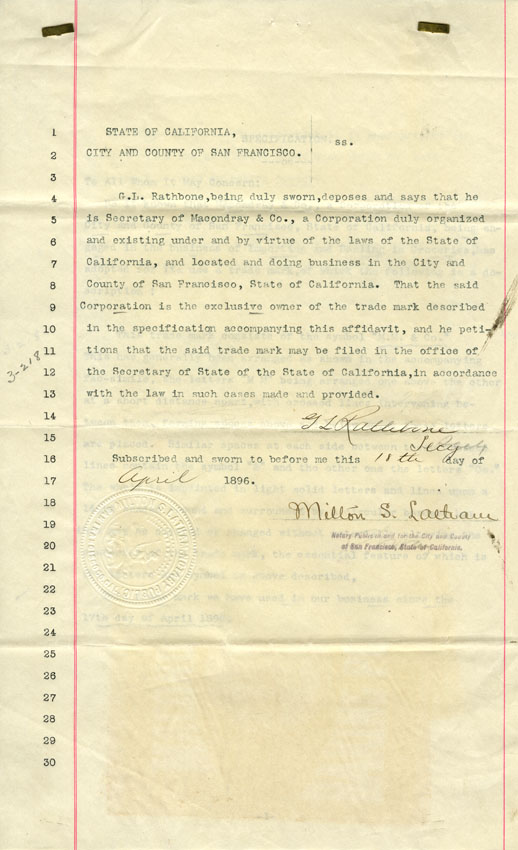 1 STATE OF CALIFORNIA,
ss.
2 CITY AND COUNTY OF SAN FRANCISCO.
3
To All Whom It May Concern:
4 G.L. Rathbone,being duly sworn,deposes and says that he
5 is Secretary of Macondray & Co., a Corporation duly organized
6 and existing under and by virtue of the laws of the State of
7 California, and located and doing business in the City and
8 County of San Francisco, State of California. That the said
9 Corporation is the exclusive owner of the trade mark described
10 in the specification accompanying this affidavit, and he peti-
11 tions that the said trade mark may be filed in the office of
3-218
12 the Secretary of State of the State of California,in accordance
13 with the law in such cases made and provided.
14 G L Rathbone
15 Secy
16 Subscribed and sworn to before me this 18th day of
17 April 1896.
18
Milton S. Latham
19
Notary Public in and for the City and County
20 of San Francisco, State of California.
21
22
23
24
25
26
27
28
29
30